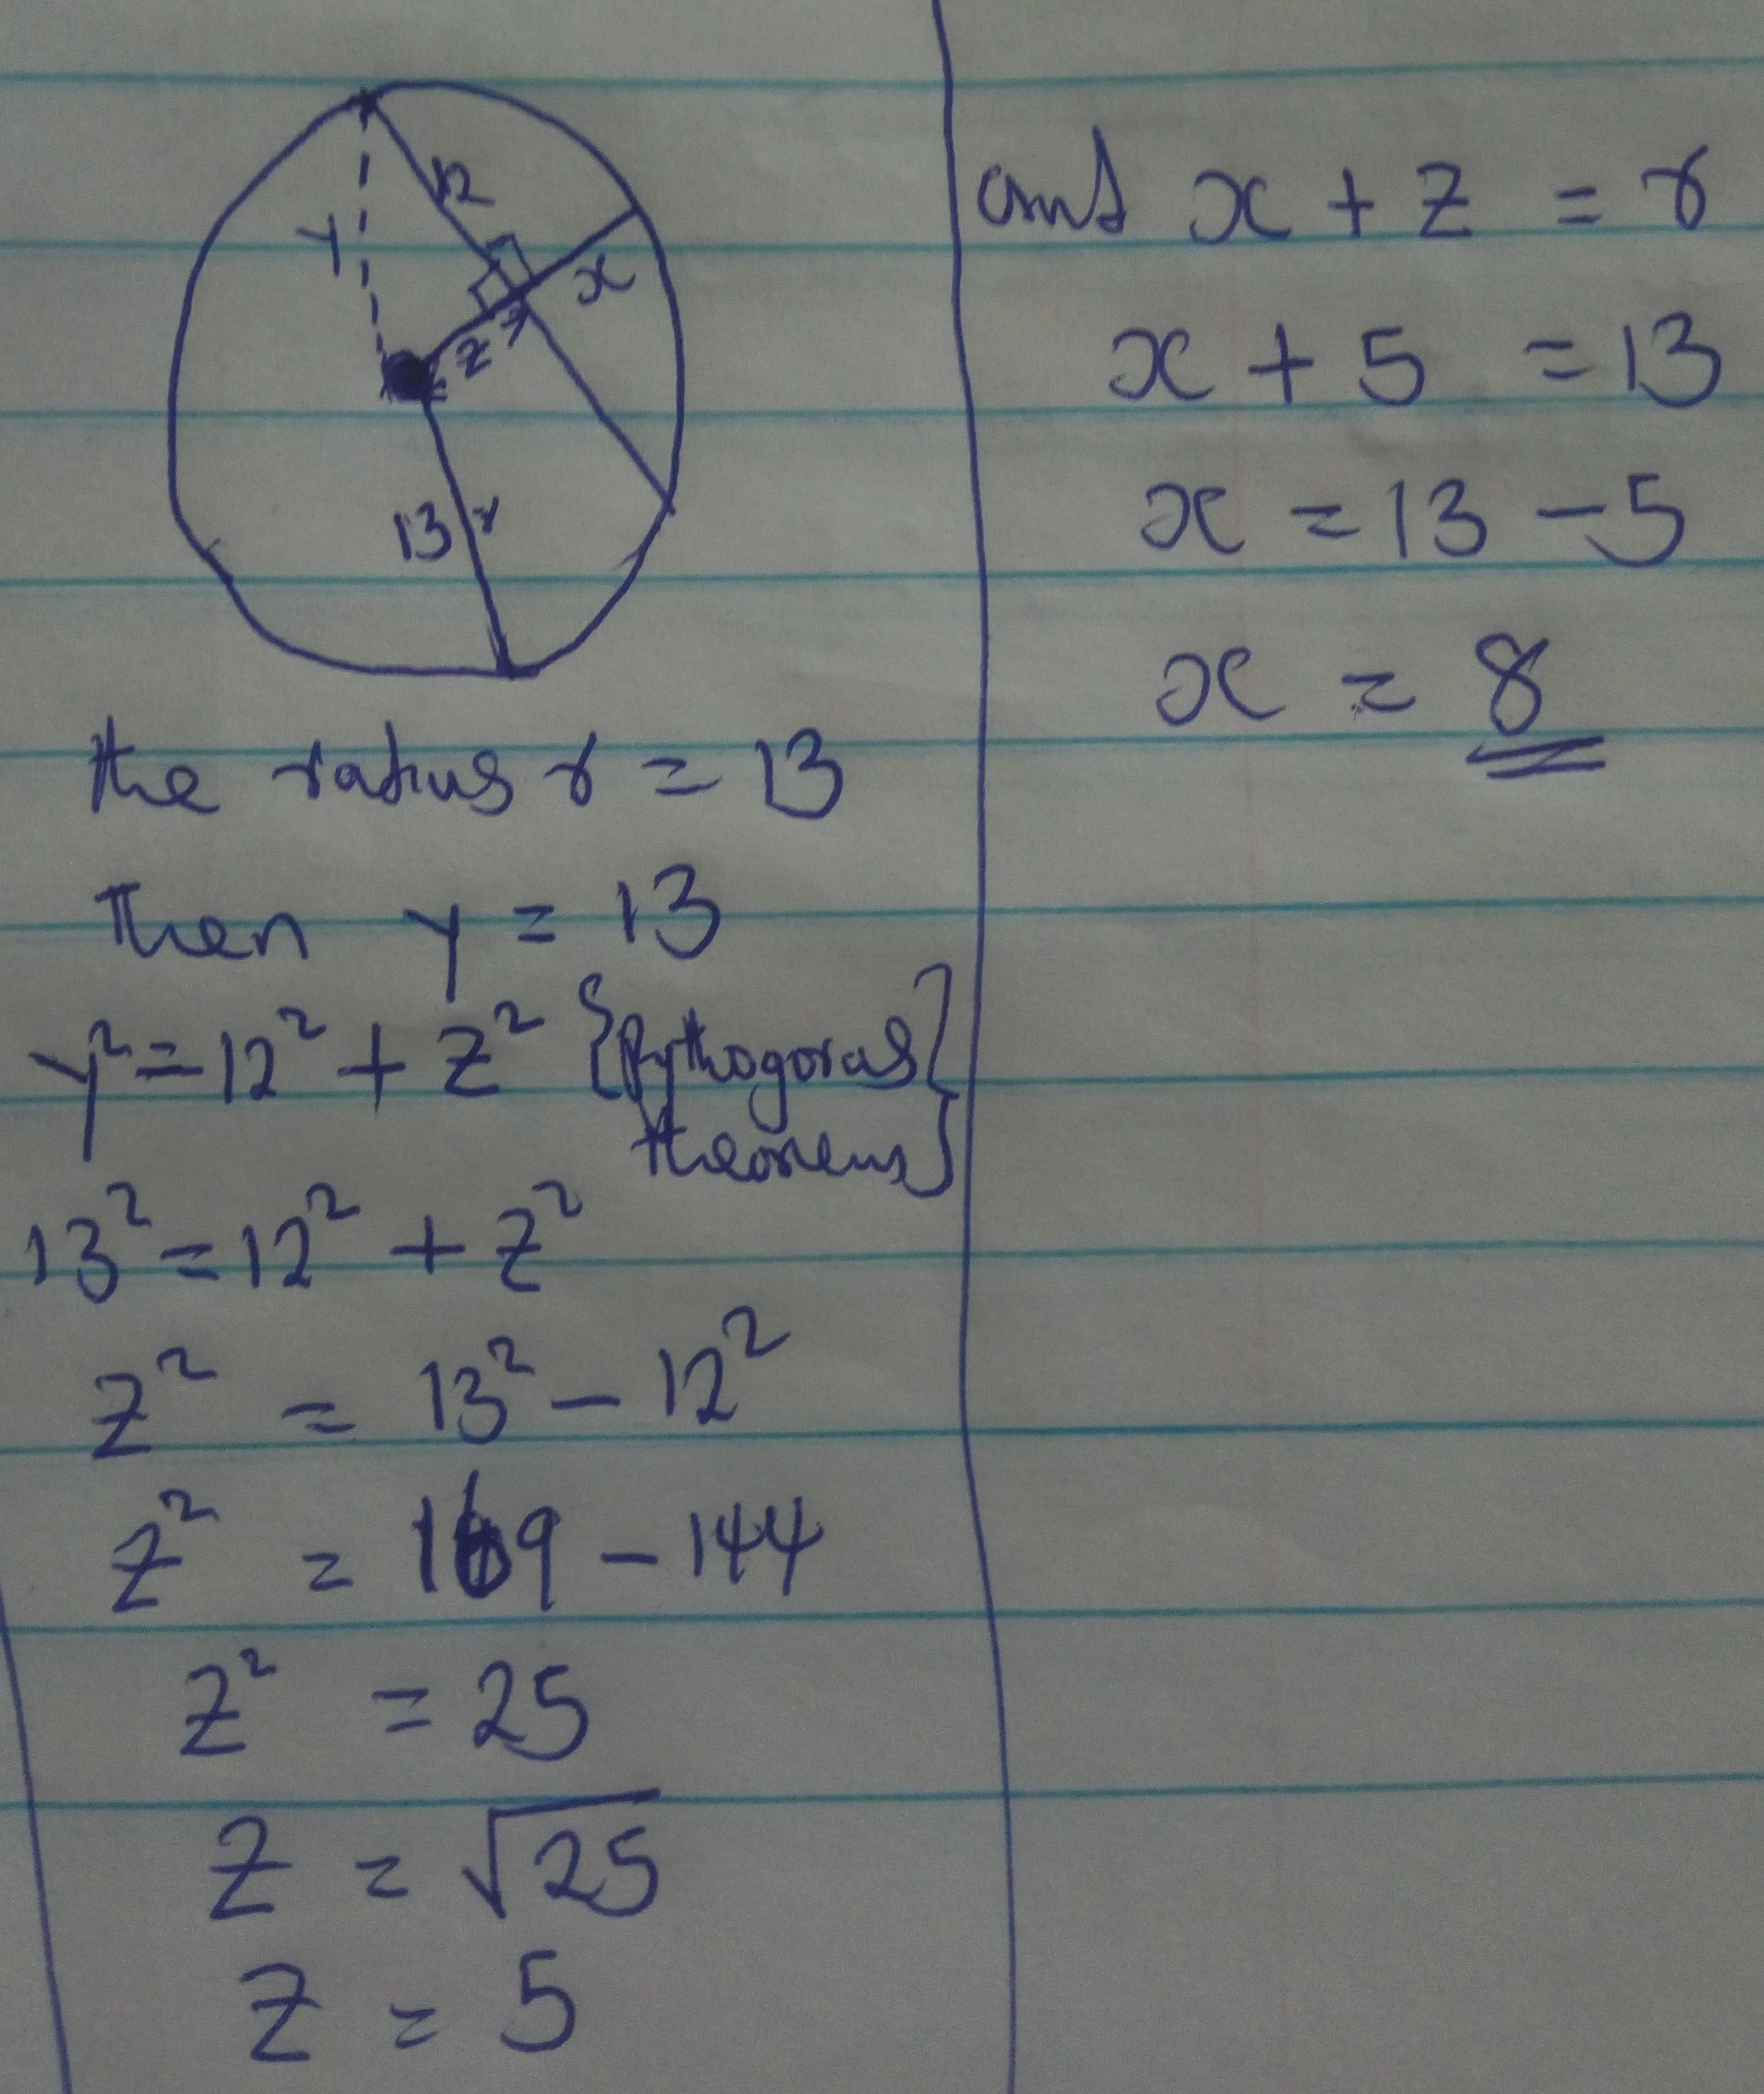 12
y
x
z
13 r
the radius r = 13
Then y = 13
y² = 12² + z² {Pythogoras
theorem}
13² = 12² + z²
z² = 13² - 12²
z² = 169 - 144
z² = 25
z = √25
z = 5
and x + z = r
x + 5 = 13
x = 13 - 5
x = 8